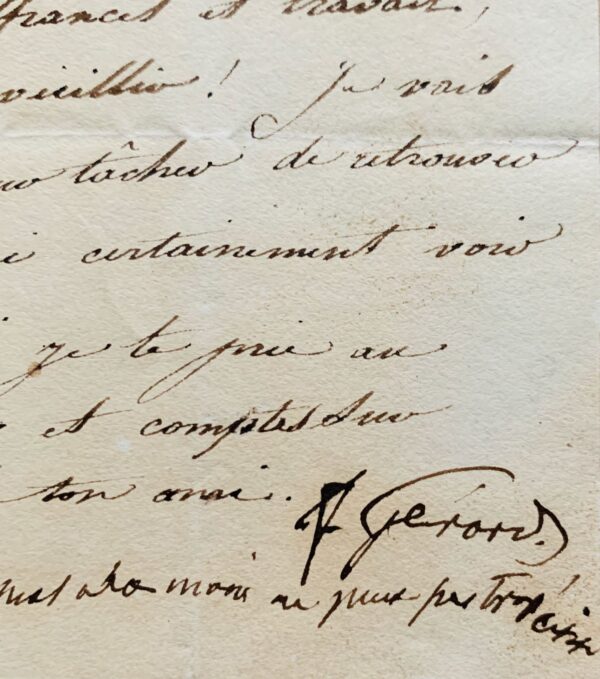 ffrances et travail,
vieillir! Je vais
tâcher de retrouver
certainement voir
je te prie au
et comptes sur
ton ami. F Gérard.
mal a la main ne peux pas